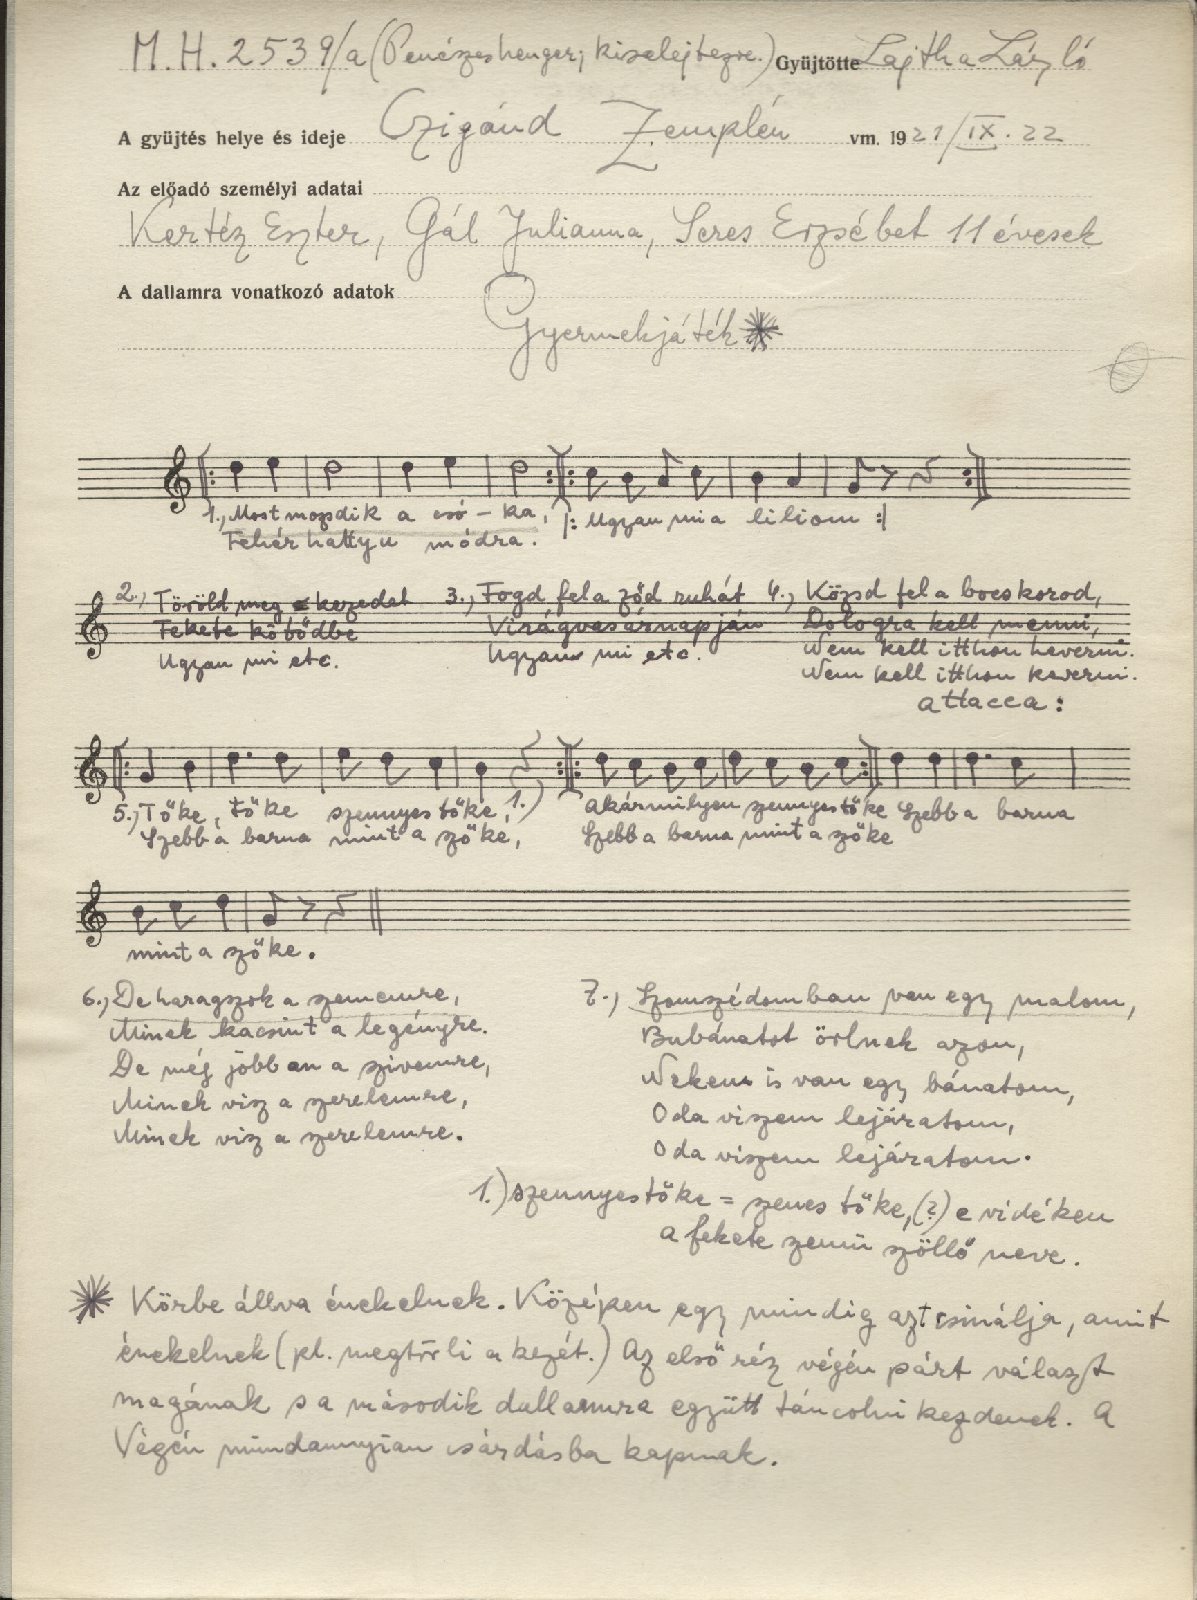 M.H. 2539/a (Penészeshenger; kiselejtezve.) Gyüjtötte Lajtha László
A gyüjtés helye és ideje Czigánd Zemplén vm. 1921/IX. 22
Az előadó személyi adatai
Kertéz Eszter, Gál Julianna, Seres Erzsébet 11 évesek
A dallamra vonatkozó adatok
Gyermekjáték *
1., Most mozsdik a csó - ka, |: Ugyan mi a liliom :|
Fehér hattyu módra.
2., Töröld meg kezedet 3., Fogd fel a ződ ruhát 4., Közsd fel a bocskorod,
Fekete kötődbe Virágvasárnapján Dologra kell menni,
Ugyan mi etc. Ugyan mi etc. Nem kell itthon heverni.
Nem kell itthon keverni.
attacca:
5., Tőke, tőke szennyes tőke, 1.) Akármilyen szennyes tőke Szebb a barna
Szebb a barna mint a szőke, Szebb a barna mint a szőke
mint a szőke.
6., De haragszok a szememre, 7., Szomszédomban van egy malom,
Minek kacsint a legényre. Bubánatot örlnek azon,
De még jobban a szivemre, Nekem is van egy bánatom,
Minek visz a szerelemre, Oda viszem lejáratom,
Minek visz a szerelemre. Oda viszem lejáratom.
1.) szennyes tőke = szenes tőke, (?) e vidéken
a fekete szemü szöllő neve.
* Körbe állva énekelnek. Középen egy mindig azt csinálja, amit
énekelnek (pl. megtörli a kezét.) Az első réz végén párt választ
magának s a második dallamra együtt táncolni kezdenek. A
Végén mindannyian csárdásba kapnak.